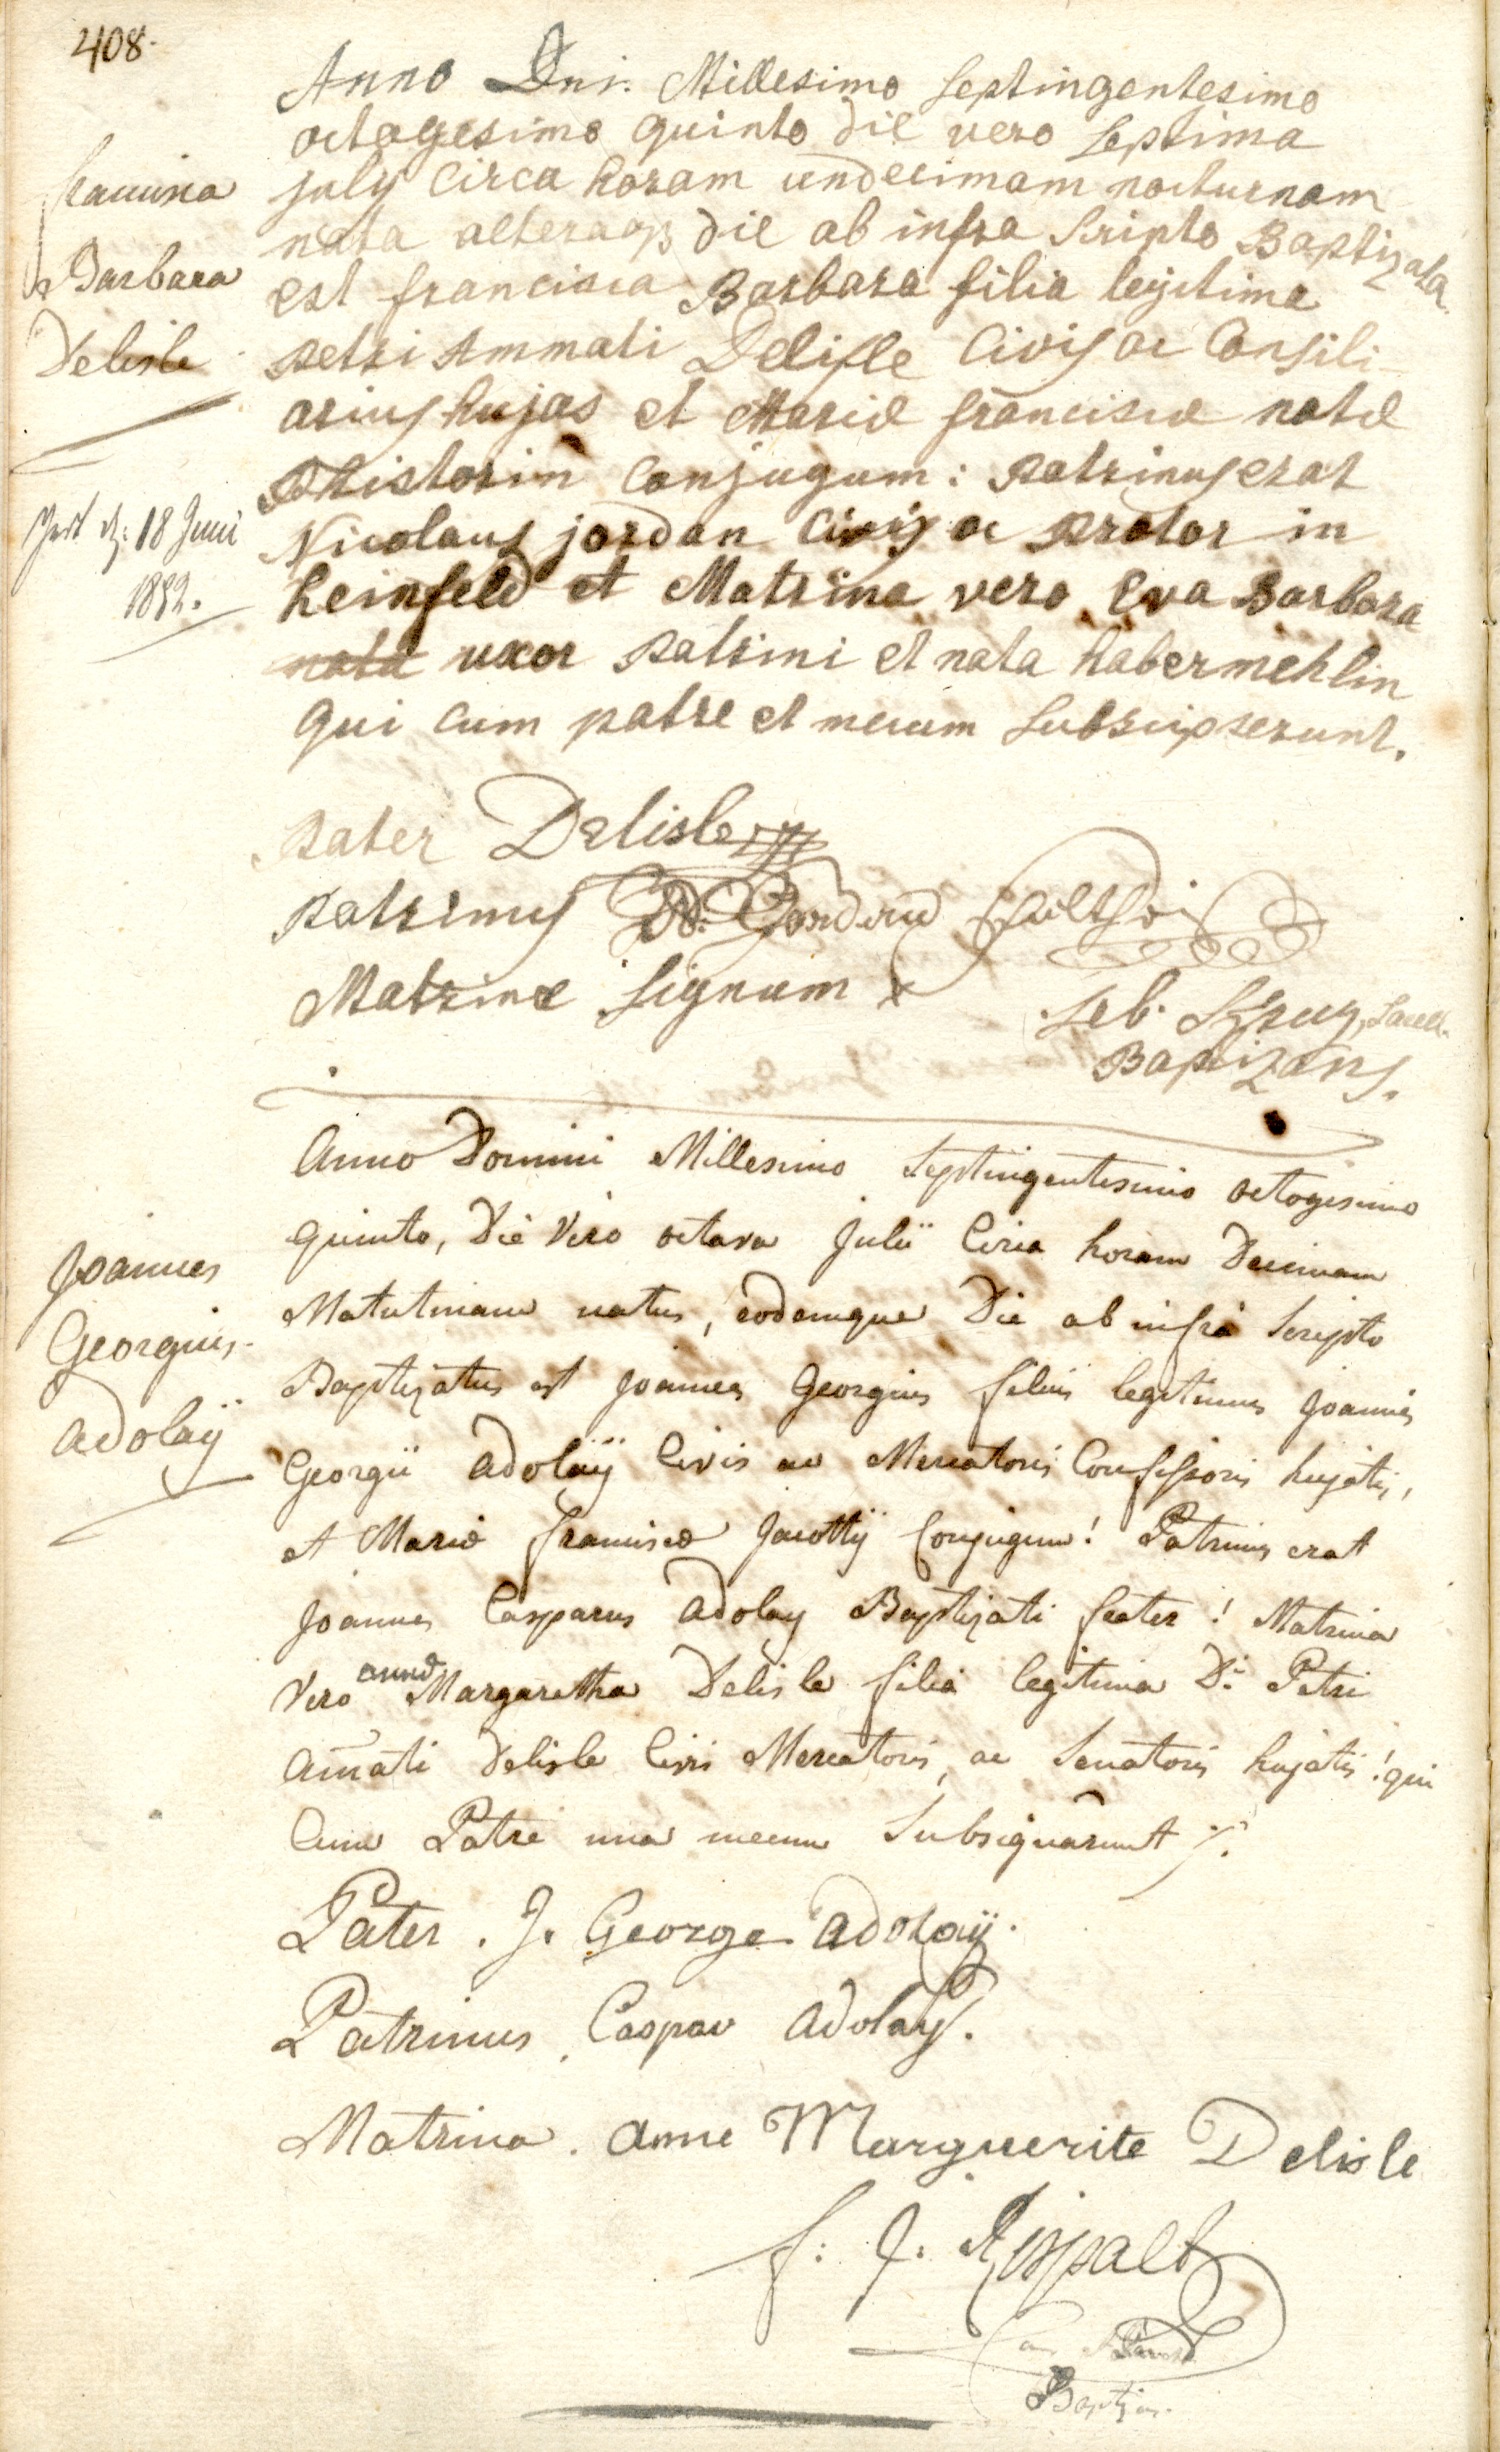 408.
Anno Dni. Millesimo septingentesimo
octogesimo quinto die vero septima
july circa horam undecimam nocturnam
nata alteraqs die ab infra scripto Baptizata
est francisca Barbara filia legitima
petri Ammati Delisle Civis ac Consili-
arius hujas et Mariæ franciscæ natæ
Pistorin Conjugum: patrinus erat
Nicolaus jordan Civis ac prætor in
heinfeld et Matrina vero Eva Barbara
nata uxor patrini et nata habermehlin
qui cum patre et mecum subscripserunt.
Barbara
Delisle
18 Juni
pater Delisle
patrinus
Matrinæ signum x
Seb.
Baptizans.
Joannes
Georgius
Adolaÿ
Anno Domini Millesimo Septingentesimo octogesimo
quinto, Die Vero octava Julii Circa horam Decimam
Matutinam natus, eodemque Die ab infra scripto
Baptizatus est Joannes Georgius filius legitimus Joannis
Georgii Adolaÿ Civis ac Mercatoris hujatis,
et Mariæ franciscæ Jacottÿ Conjugum! Patrinus erat
Joannes Casparus Adolay Baptizati frater! Matrina
Vero anna Margaretha Delisle filia legitima D: Petri
Amati Delisle Civis Mercatoris, ac Senatoris hujatis! qui
Cum Patre una mecum Subsignarunt
Pater. J. George Adolaÿ.
Patrinus, Caspar Adolay.
Matrina. anne Marguerite Delisle
f: J.